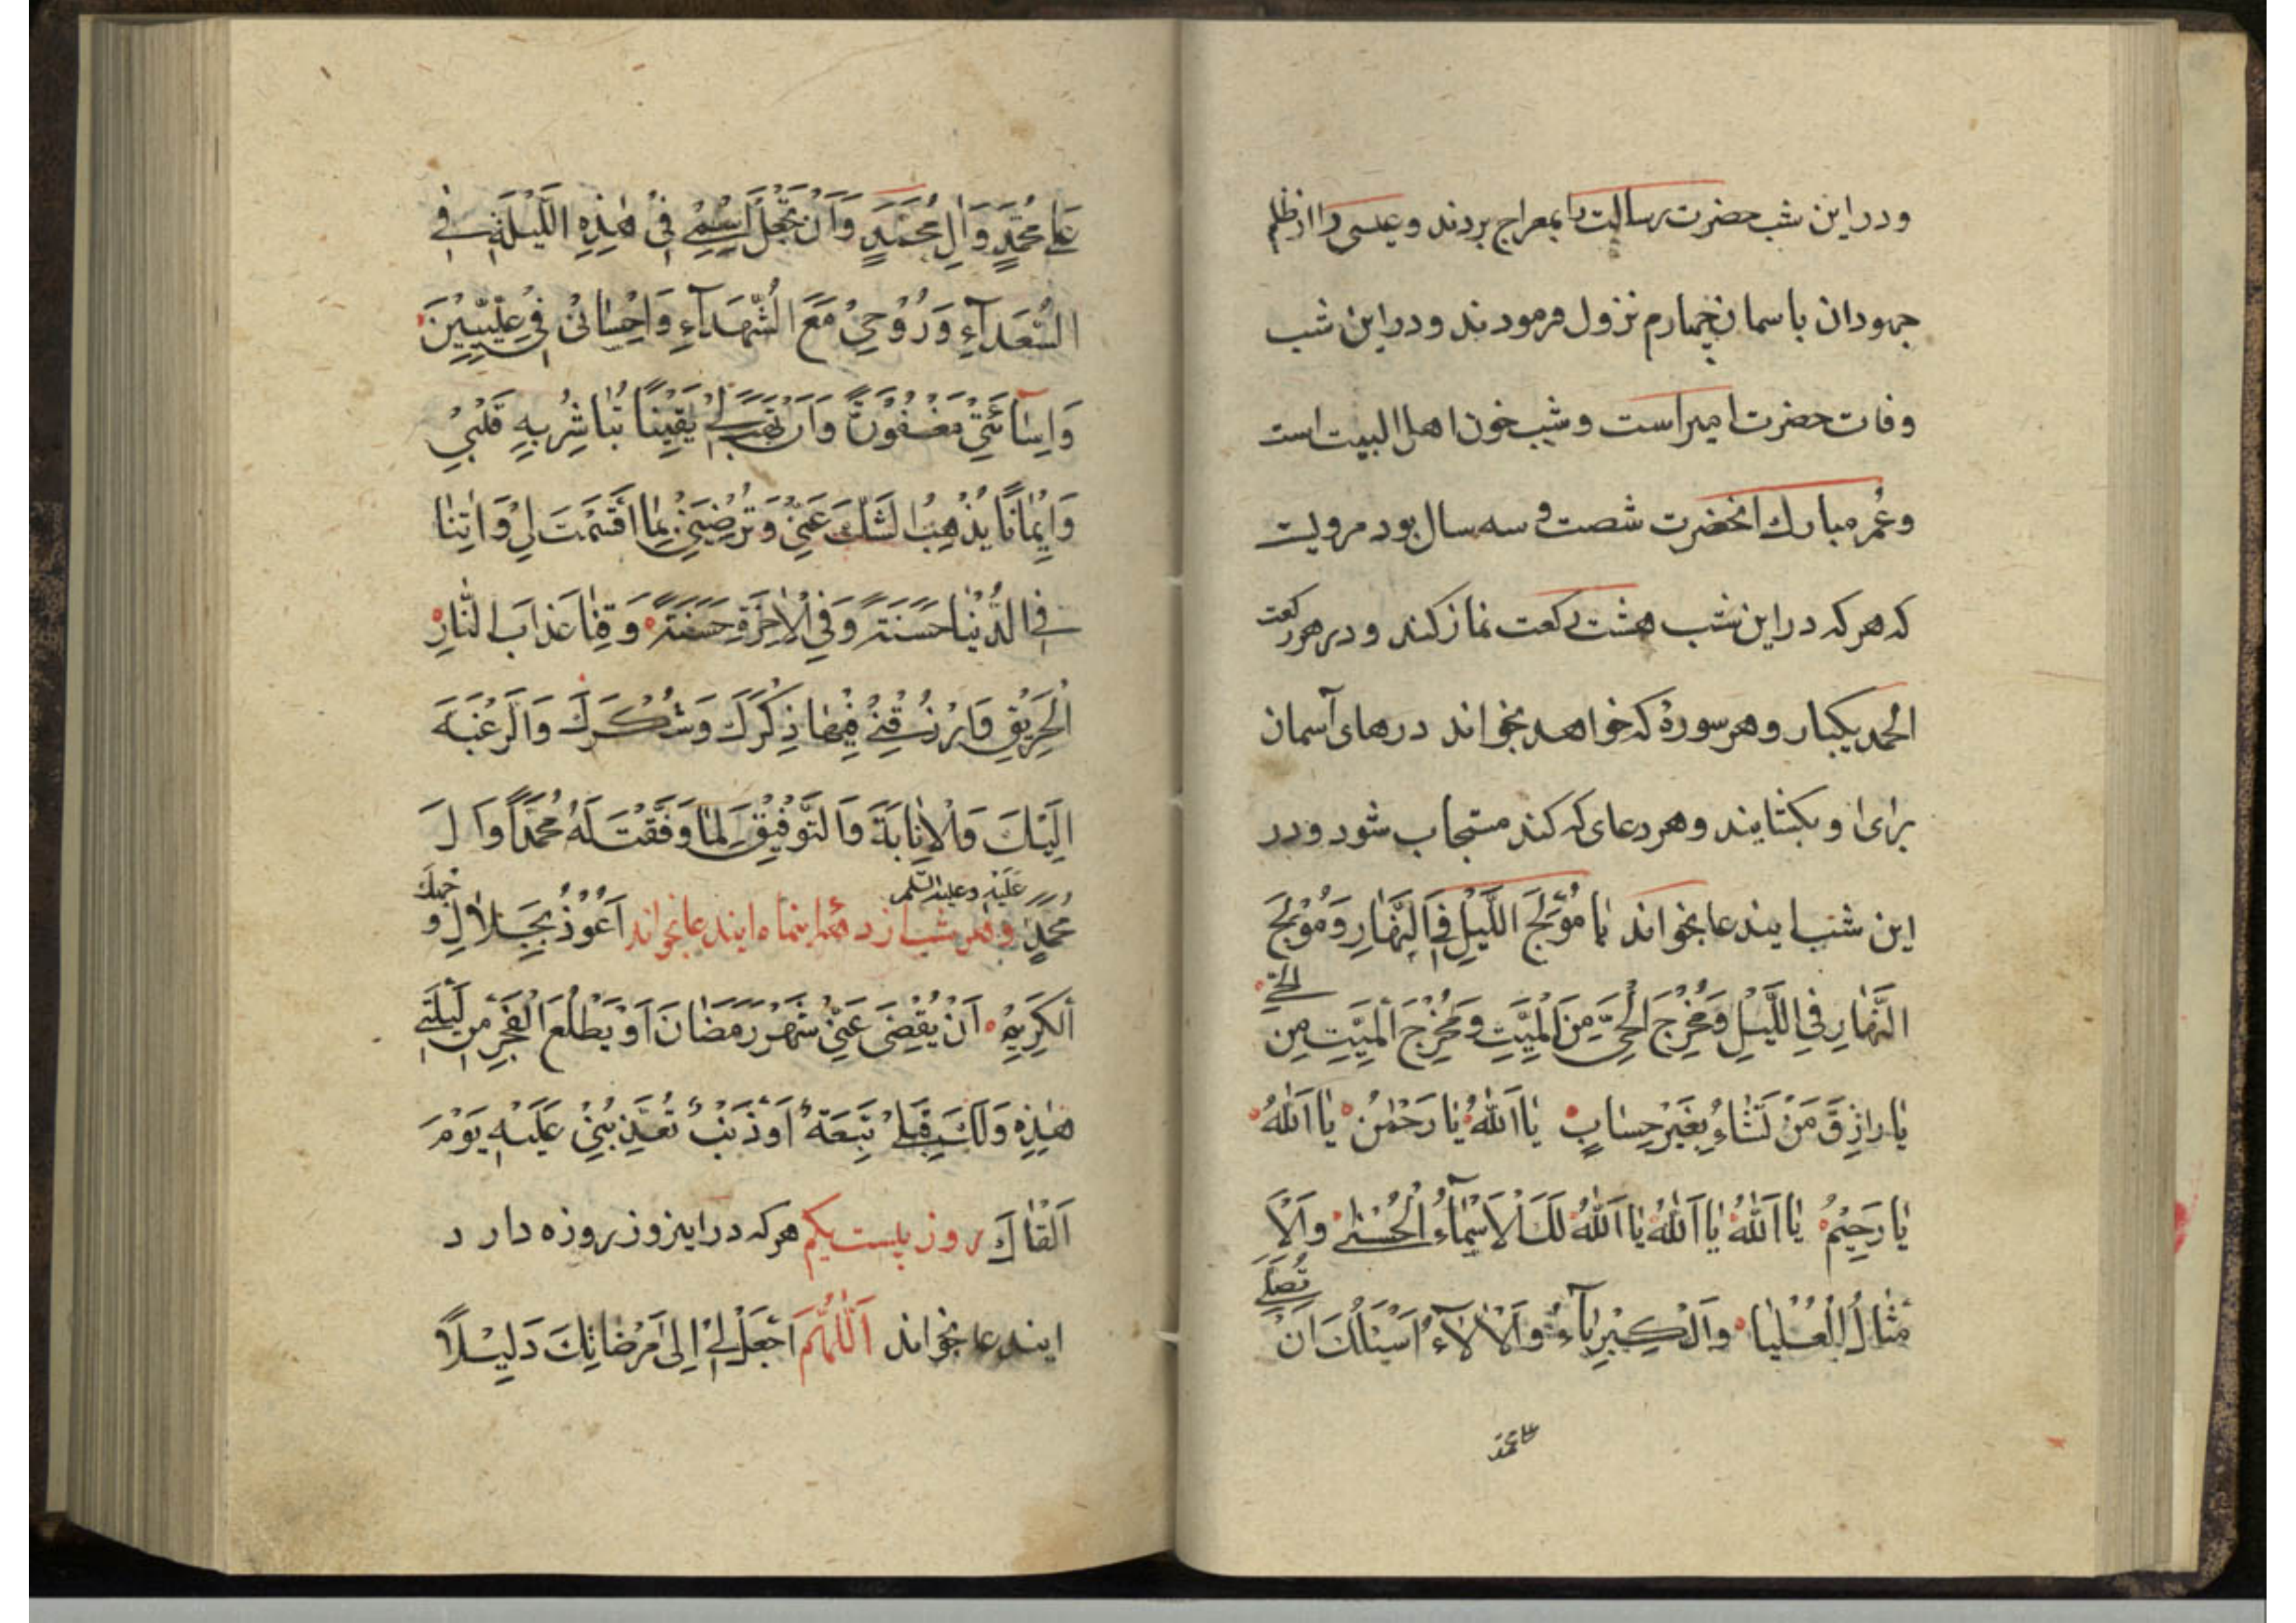 ودر این شب حضرت رسالت را بمعراج بردند و عیسی را از ظلم
جهودان باسمان چهارم نزول فرمودند ودر این شب
وفات حضرت امیر است و شب خون اهل البیت است
وعُمر مبارك انحضرت شصت و سه سال بود مرویست
که هرکه در این شب هشت رکعت نماز کند و در هر رکعت
الحمد یکبار و هر سورهٔ که خواهد بخواند درهای آسمان
برای او بکشایند و هر دعای که کند مستجاب شود ودر
این شب ایندعا بخواند یٰا مُوْلِجَ اللَّیْلِ فِی النَّهٰارِ وَمُوْلِجَ
النَّهٰارِ فِی اللَّیْلِ وَمُخْرِجَ الْحَیِّ مِنَ الْمَیِّتِ وَمُخْرِجَ الْمَیِّتِ مِنَ الْحَیِّ
یٰا رٰازِقَ مَنْ تَشٰاءُ بِغَیْرِ حِسٰابٍ یٰا اَللّٰهُ یٰا رَحْمٰنُ یٰا اَللّٰهُ
یٰا رَحِیْمُ یٰا اَللّٰهُ یٰا اَللّٰهُ یٰا اَللّٰهُ لَكَ الْاَسْمٰآءُ الْحُسْنٰی وَالْاَ
مْثٰالُ الْعُلْیٰا وَالْكِبْرِیٰآءُ وَالْاٰلآءُ اَسْئَلُكَ اَنْ تُصَلِّیَ
علی محمد
عَلیٰ مُحَمَّدٍ وَاٰلِ مُحَمَّدٍ وَاَنْ تَجْعَلَ اِسْمِیْ فِیْ هٰذِهِ اللَّیْلَةِ فِی
السُّعَدَآءِ وَرُوْحِیْ مَعَ الشُّهَدَآءِ وَاِحْسٰانِیْ فِیْ عِلِّیِّیْنَ
وَاِسٰآئَتِیْ مَغْفُوْرَةً وَاَنْ تَهَبَ لِیْ یَقِیْنًا تُبٰاشِرُ بِهِ قَلْبِیْ
وَاِیْمٰانًا یُذْهِبُ الشَّكَّ عَنِّیْ وَتُرْضِیَنِیْ بِمٰا قَسَمْتَ لِیْ وَاٰتِنٰا
فِی الدُّنْیٰا حَسَنَةً وَفِی الْاٰخِرَةِ حَسَنَةً وَقِنٰا عَذٰابَ النّٰارِ
الْحَرِیْقِ وَارْزُقْنِیْ فِیْهٰا ذِكْرَكَ وَشُكْرَكَ وَالرَّغْبَةَ
اِلَیْكَ وَالْاِنٰابَةَ وَالتَّوْفِیْقَ لِمٰا وَفَّقْتَ لَهُ مُحَمَّدًا وَاٰلَ
مُحَمَّدٍ عَلَیْهِ وعلیه السَّلم وهر شب از دههٔ اینماه ایندعا بخواند اَعُوْذُ بِجَلٰالِ وَجْهِكَ
الْكَرِیْمِ اَنْ یَقْضیَ عَنِّیْ شَهْرُ رَمَضٰانَ اَوْ یَطْلُعَ الْفَجْرُ مِنْ لَیْلَتِیْ
هٰذِهِ وَلَكَ قِبَلِیْ تَبِعَةٌ اَوْ ذَنْبٌ تُعَذِّبُنِیْ عَلَیْهِ یَوْمَ
اَلْقٰاكَ روز بیست یکم هرکه در اینروز روزه دارد
ایندعا بخواند اَللّٰهُمَّ اجْعَلْ لِیْ اِلیٰ مَرْضٰاتِكَ دَلِیْلًا